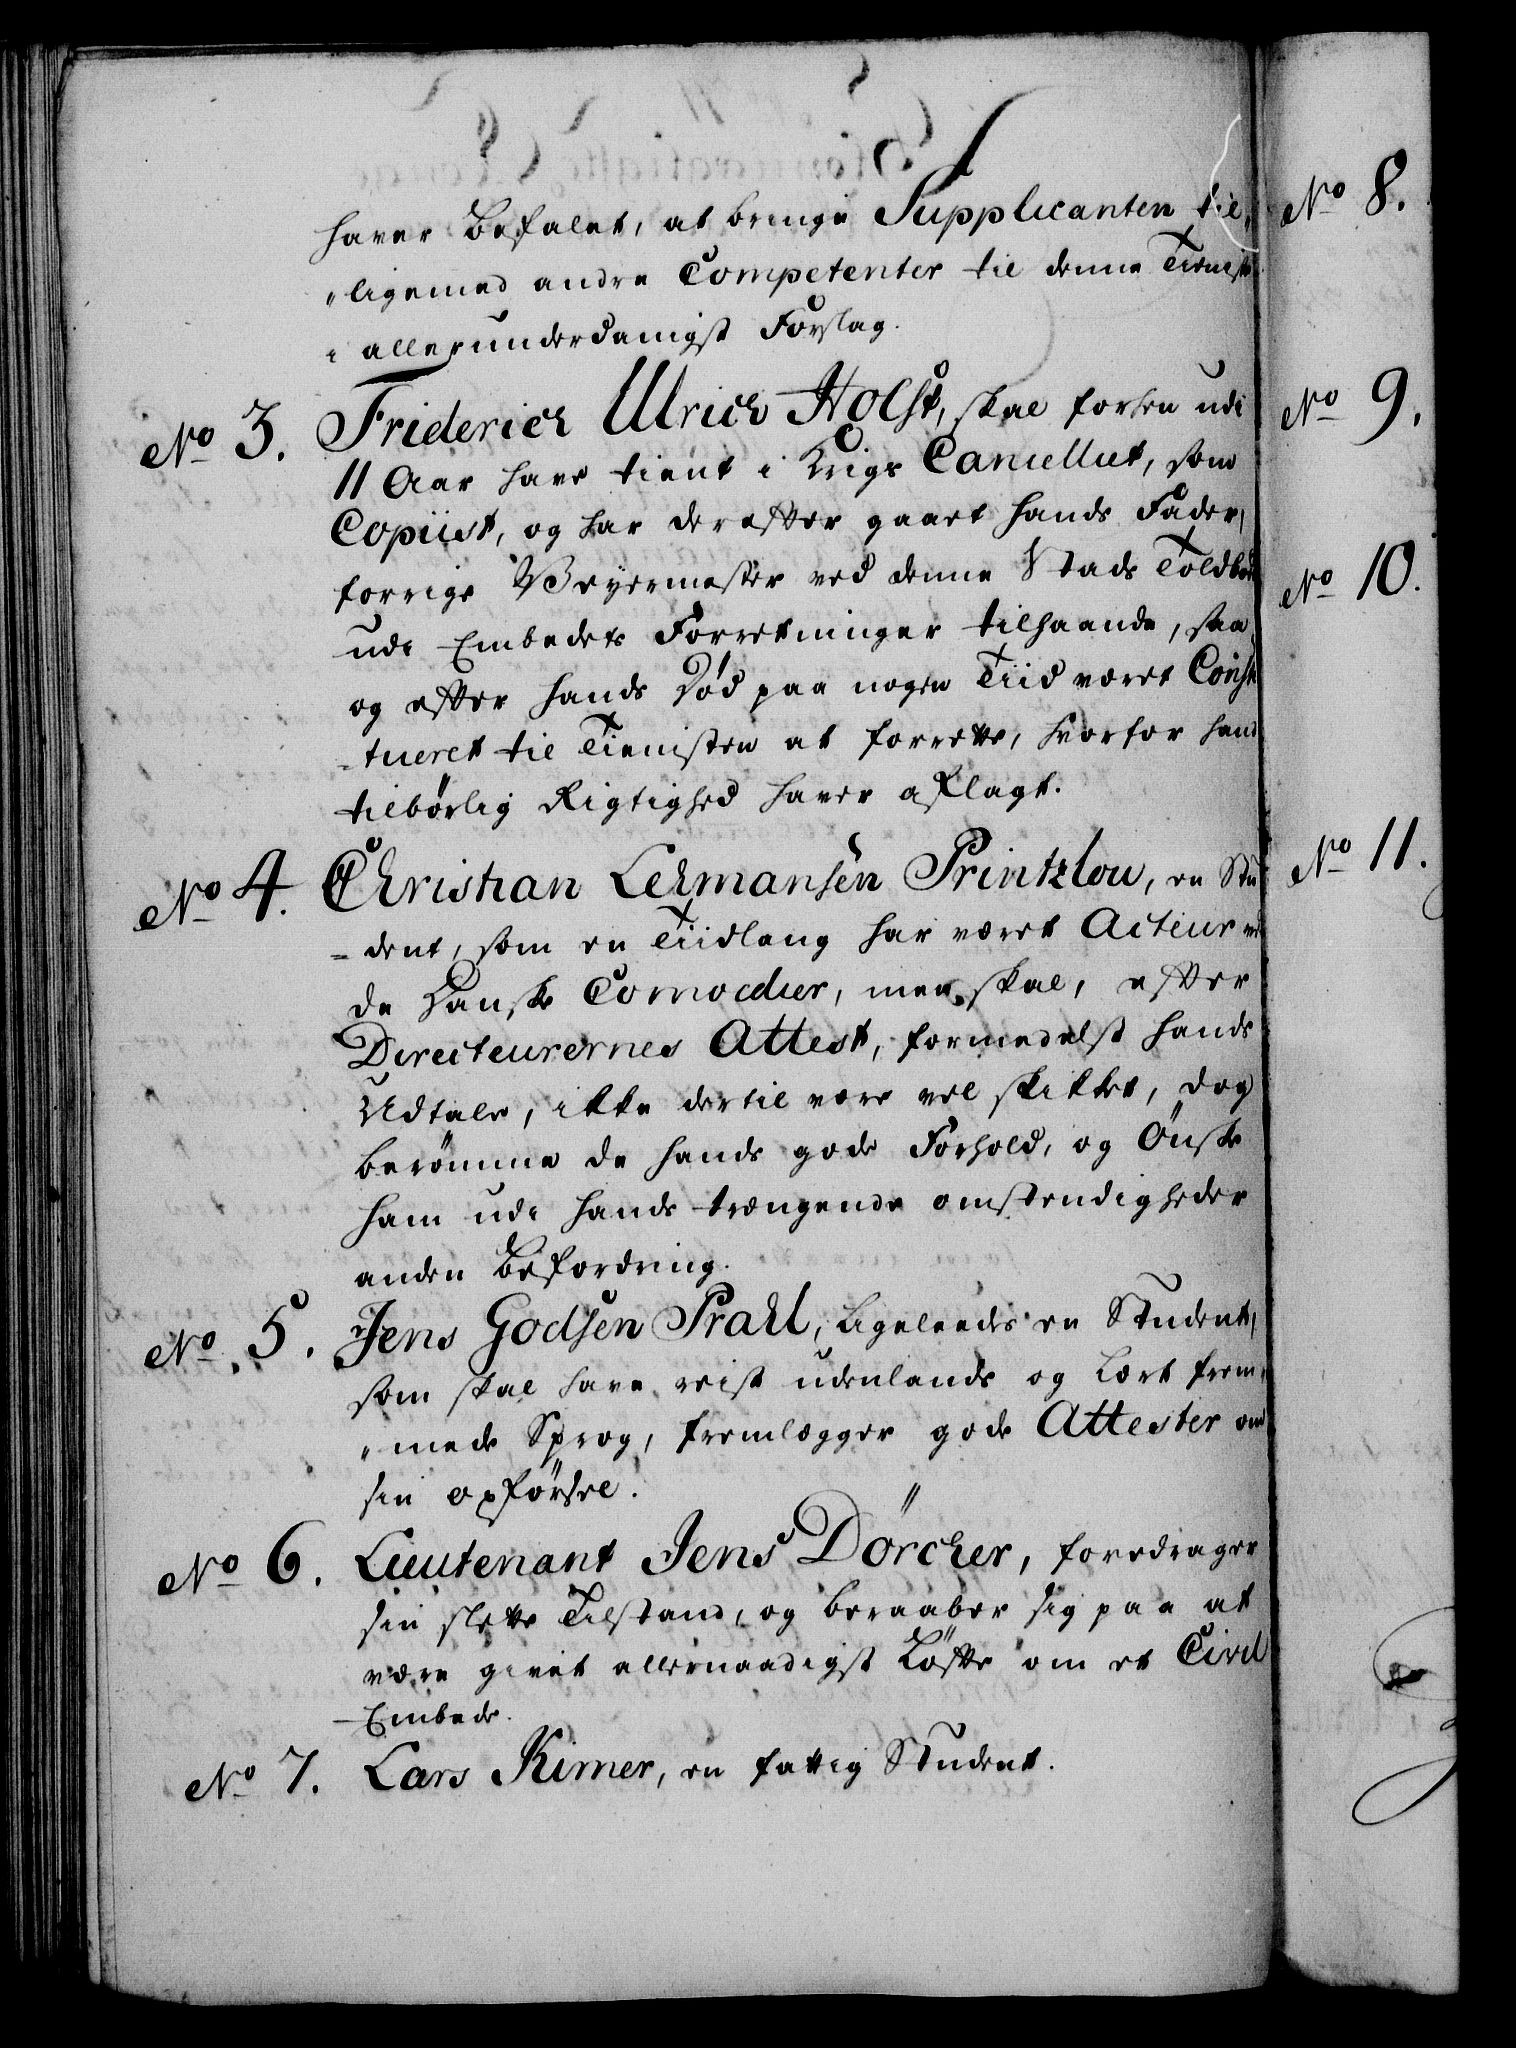 haver befalet, at bringe Supplicanten til„
„ligemed andre Competenter til denne Tieniste
i allerunderdanigst Forslag.
No 3. Friderich Ulrich Holst, skal forhen udi
11 Aar have tient i Krigs Cancelliet, som
Copiist, og har derefter gaaet hands Fader,
forrige Veyermester ved denne Stads Toldboed
udi Embedets Forretninger tilhaande, saa
og efter hands Död paa nogen Tiid været Consti
-tueret til Tienisten at forrette, hvorfor hand
tilbørlig Rigtighed haver aflagt.
No 4. Christian Lehmansen Printzlou, en Stu
=dent, som en Tiidlang har været Acteur ved
de Danske Comoedier, men skal, efter
Directeurernes Attest, formedelst hands
Udtale, ikke dertil være vel skikket, dog
berömme de hands gode Forhold, og Önske
ham udi hands trængende omstendigheder
anden Befordring.
No. 5. Jens Godsen Prahl, Ligeleedes en Student,
som skal have reist udenlands og lært frem„
„mede Sprog, fremlægger gode Attester om
sin opførsel.
No 6. Lieutenant Jens Dörcher, foredrager
sin slette Tilstand, og beraaber sig paa at
være givet allernaadigst Löfte om et Civil
Embede.
No 7. Lars Kimer, en fattig Student.
No 8.
No 9.
No 10.
No 11.